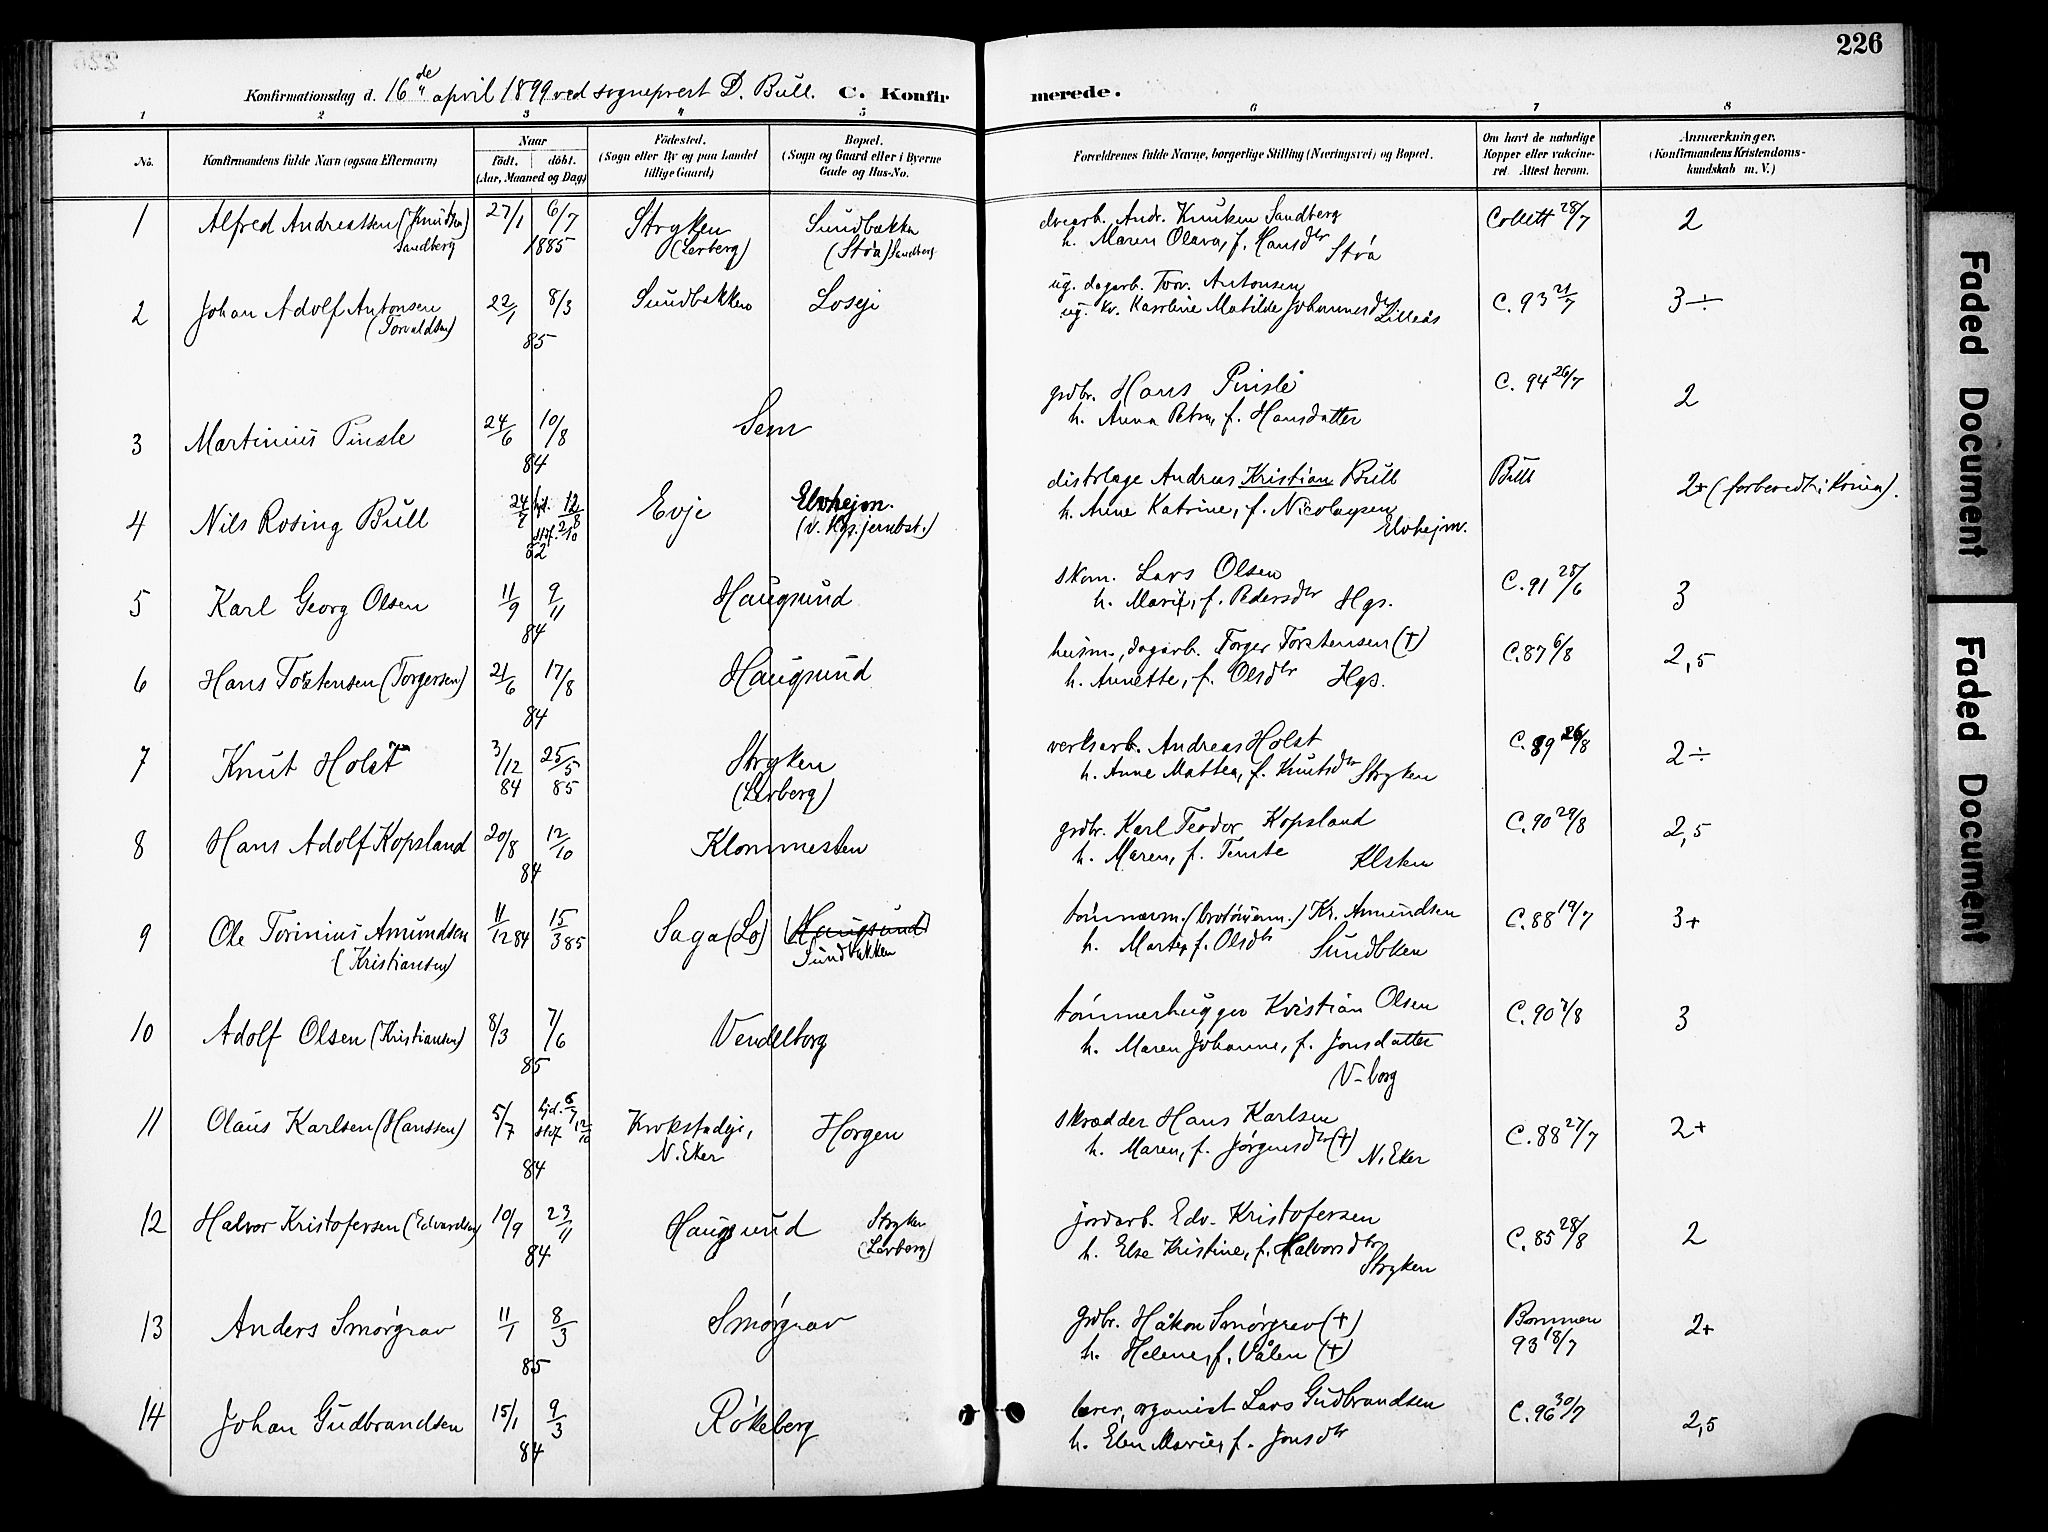 226
Konfirmationsdag d. 16de april 1899 ved sogneprest D. Bull. C. Konfirmerede.
1 2 3 4 5 6 7 8
No. Konfirmandens fulde Navn (ogsaa Efternavn) Naar født, døbt. (Aar, Maaned og Dag) Fødested. (Sogn eller By og paa Landet tillige Gaard) Bopæl. (Sogn og Gaard eller i Byerne Gade og Hus-No. Forældrenes fulde Navne, borgerlige Stilling (Næringsvei) og Bopæl. Om havt de naturlige Kopper eller vaccineret. Attest herom. Anmærkninger. (Konfirmandens Kristendomskundskab m. V.)
1 Alfred Andreassen (Knutsen) 27/1 6/7 Stryken Sundbakken Andr. Knutsen Sandberg Collett 28/7 2
Sandberg 1885 (Lerberg) (Støa) Sandberg h. Maren Olava, f. Hansdtr Støa
2 Johan Adolf Antonsen 22/1 8/3 Sundbakken Loseje ug. dagarb. Torv. Antonsen C. 93 21/7 3÷
(Torvaldsen) 85 ug. kv. Karoline Matilde Johannesdtr Lilleås
3 Martinius Pinsle 24/6 10/8 Sem grdbr. Hans Pinsle C. 94 26/7 2
84 h. Anna Petra, f. Hansdatter
4 Nils Rosing Bull 24/7 hjd. 12/8 Evje Elvhejm. distrlæge Andreas Kristian Bull Bull 2+ (forberedt i Kr.ania).
stdf. 2/10 82 (v. Hgs. jernbst.) h. Anne Katrine, f. Nicolaysen Elvhejm.
5 Karl Georg Olsen 11/9 9/11 Haugsund skom. Lars Olsen C. 91 28/6 3
84 h. Marie, f. Pedersdtr Hgs.
6 Hans Torstensen (Torgersen) 21/6 17/8 Haugsund husm., dagarb. Torger Torstensen (†) C. 87 6/8 2,5
84 h. Annette, f. Olsdtr Hgs.
7 Knut Holst 3/12 25/5 Stryken verksarb. Andreas Holst C. 89 26/8 2÷
84 85 (Lerberg) h. Anne Mattea, f. Knutsdtr Stryken
8 Hans Adolf Kopsland 20/8 12/10 Klommesten grdbr. Karl Teodor Kopsland C. 90 29/8 2,5
84 h. Maren, f. Temte Klsten
9 Ole Torinius Amundsen 11/12 84 15/3 85 Saga (Lo) (Haugsund) Kr. Amundsen C. 88 19/7 3+
(Kristiansen) Sundbakken h. Marte, f. Olsdtr Sundbken
10 Adolf Olsen (Kristiansen) 8/3 7/6 Vendelborg tømmerhugger Kristian Olsen C. 90 7/8 3
85 h. Maren Johanne, f. Jonsdatter
V-borg
11 Olaus Karlsen (Hanssen) 5/7 hjd. 6/7 Krokstadeje, Horgen skrædder Hans Karlsen C. 88 27/7 2+
stdf 12/10 84 N. Eker h. Maren, f. Jørgensdtr (†) N. Eker
12 Halvor Kristofersen (Edvardsen) 10/9 23/11 Haugsund Stryken jordarb. Edv. Kristofersen C. 85 28/8 2
84 (Lerberg) h. Else Kristine, f. Halvorsdtr Stryken
13 Anders Smørgrav 11/1 8/3 Smørgrav Grdbr. Håkon Smørgrav (†) Bommen 2+
85 h. Helene, f. Vålen (†) 93 18/7
14 Johan Gudbrandsen 15/1 9/3 Røkeberg lærer, organist Lars Gudbrandsen C. 96 30/7 2,5
84 h. Elen Marie, f. Jonsdtr
Faded Document
Faded Document